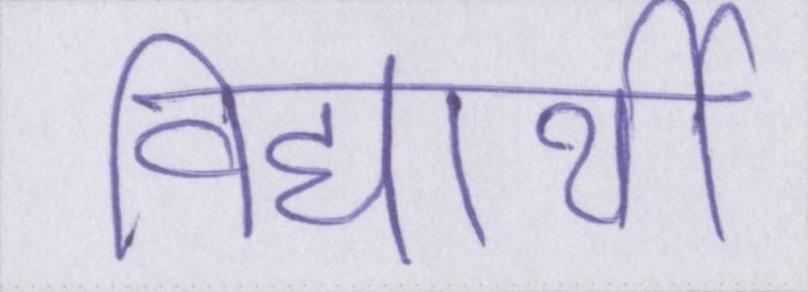 विद्यार्थी